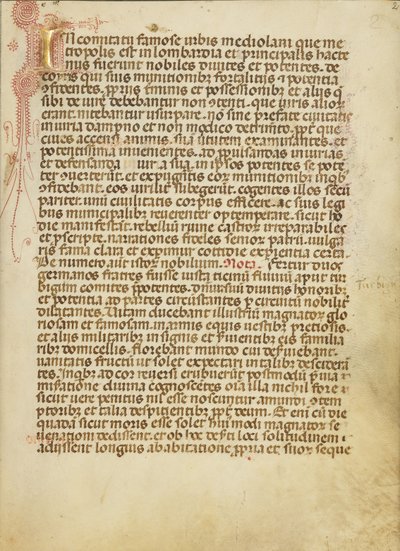 In comitatu famose urbis mediolani que me
tropolis est in lombardia et principalis hacte
nus fuerunt nobiles divites et potentes. De
qui suis munitionibꝫ fortalitiis ⁊ potentia
ꝯfidentes. ꝓpriis terminis et possessionibꝫ et aliis q̄
sibi de iure debebantur non ꝯtenti. que iuris alioꝝ
erant. nitebantur usurpare. nō sine prefate civitatis
iniuria dampno et non modico detrimēto. ꝓpter qđ
cives accensi animis. suā virtutem examinantes. et
potentissimā invenientes. ad ꝓpulsandas iniurias
et defensanda iura sua. in ipsos potentes se potē
ter ꝯverterūt. et expugnatis eoꝝ munitionibꝫ in qbꝫ
ꝯfidebant. eos viriliter subegerūt. cogentes illos secū
pariter. unū civilitatis corpus efficere. ac suis legi
bus municipalibꝫ reverenter optemperare. sicut ho
die manifestat. rebelliū ruine castroꝝ irreparabiles
et ꝓscripte. narrationes fideles senioꝝ patrū. vulga
ris fama clara et exprimūt cottidie exꝑientia certa.
De numero autē istoꝝ nobilium. Nota. fertur duos
germanos fratres fuisse iuxta ticinū fluviū apud tur
bigum comites ꝑpotentes. diversū divitiis honoribꝫ
et potentia ad partes circūstantes ꝑ circuitū nobilit̄
dilatantes. Vitam ducebant illustriū magnatoꝝ glo
riosam et famosam. in armis equis vestibꝫ pretiosis.
et aliis militaribꝫ insigniis et ꝓvenientibꝫ eis familia
ribꝫ domicellis. florebant mundo cui deserviebant.
vanitatis fructū ut solet expectari in talibꝫ desiderā
tes. In qbꝫ ad cor reversi erubuerūt postmodū ꝑvia
miseratione divina cognoscētes oīa illa nichil fore
sicut vere penitus nil esse noscuntur amundi ꝯtem
ptoribꝫ et talia despicientibꝫ ꝓpter deum. Et enī cū die
quadā sicut moris esse solet huiusmodi magnatoꝝ se
venationi dedissent. et ob hoc deserti loci solitudinem
adiissent longius ab habitatione ꝓpria et suoꝝ seque
Turbigo
2